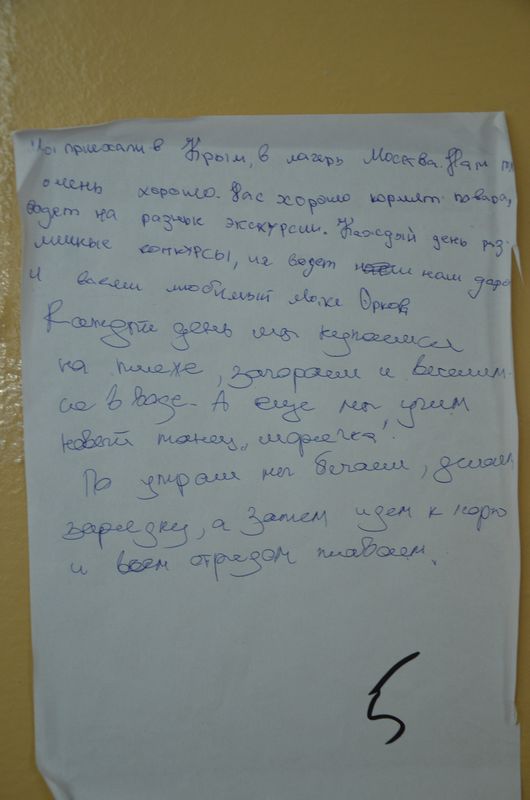 Мы приехали в Крым, в лагерь Москва. Нам
очень хорошо. Нас хорошо кормят повара,
водет на разные экскурсии. Каждый день раз-
личные конкурсы, ведет нам
И всеми любимый
Каждый день мы купаемся
на пляже, загораем и веселим-
ся в воде. А еще мы учим
новый танец „морячка".
По утрам мы бегаем, делаем
зарядку, а затем идем к морю
и всем отрядом плаваем.
5